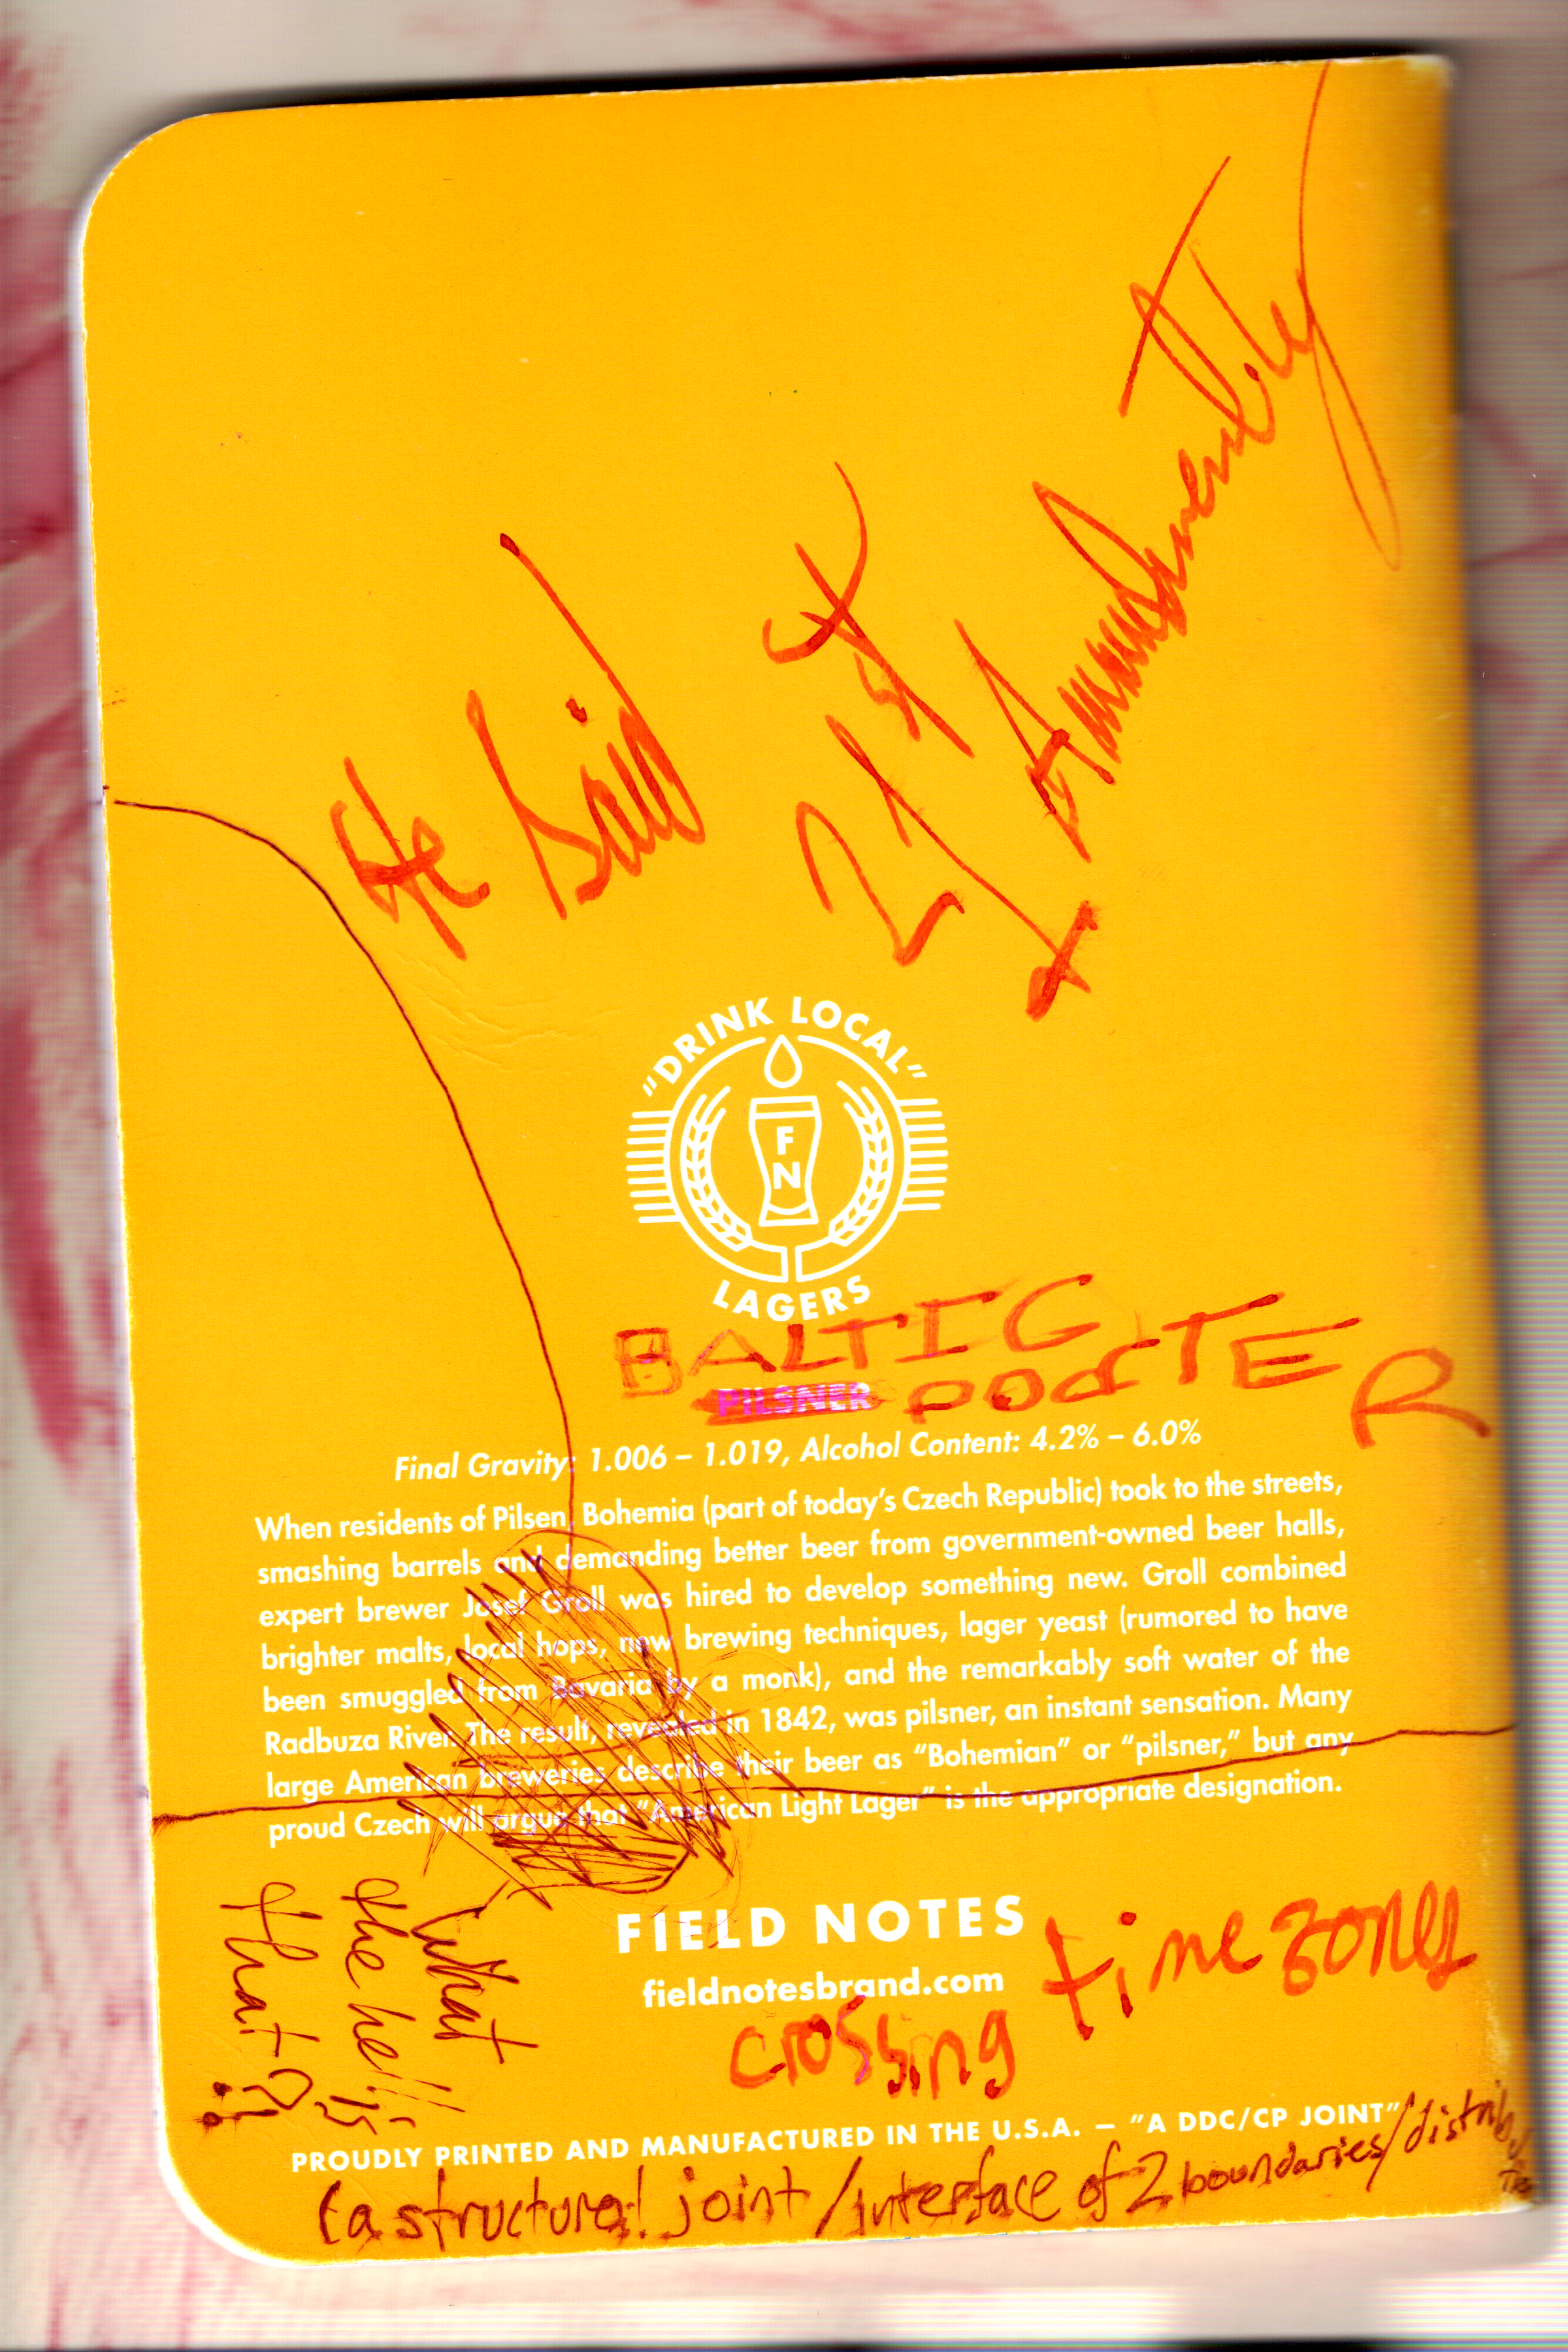 He Said
21st
Amendment
"DRINK LOCAL"
FN
LAGERS
BALTIC
PILSNER PORTER
Final Gravity: 1.006 – 1.019, Alcohol Content: 4.2% – 6.0%
When residents of Pilsen, Bohemia (part of today's Czech Republic) took to the streets,
smashing barrels and demanding better beer from government-owned beer halls,
expert brewer Josef Groll was hired to develop something new. Groll combined
brighter malts, local hops, new brewing techniques, lager yeast (rumored to have
been smuggled from Bavaria by a monk), and the remarkably soft water of the
Radbuza River. The result, revealed in 1842, was pilsner, an instant sensation. Many
large American breweries describe their beer as "Bohemian" or "pilsner," but any
proud Czech will argue that "American Light Lager" is the appropriate designation.
What
the hell is
that?!
FIELD NOTES
fieldnotesbrand.com
crossing time zones
PROUDLY PRINTED AND MANUFACTURED IN THE U.S.A. — "A DDC/CP JOINT"
(a structural joint/interface of 2 boundaries/